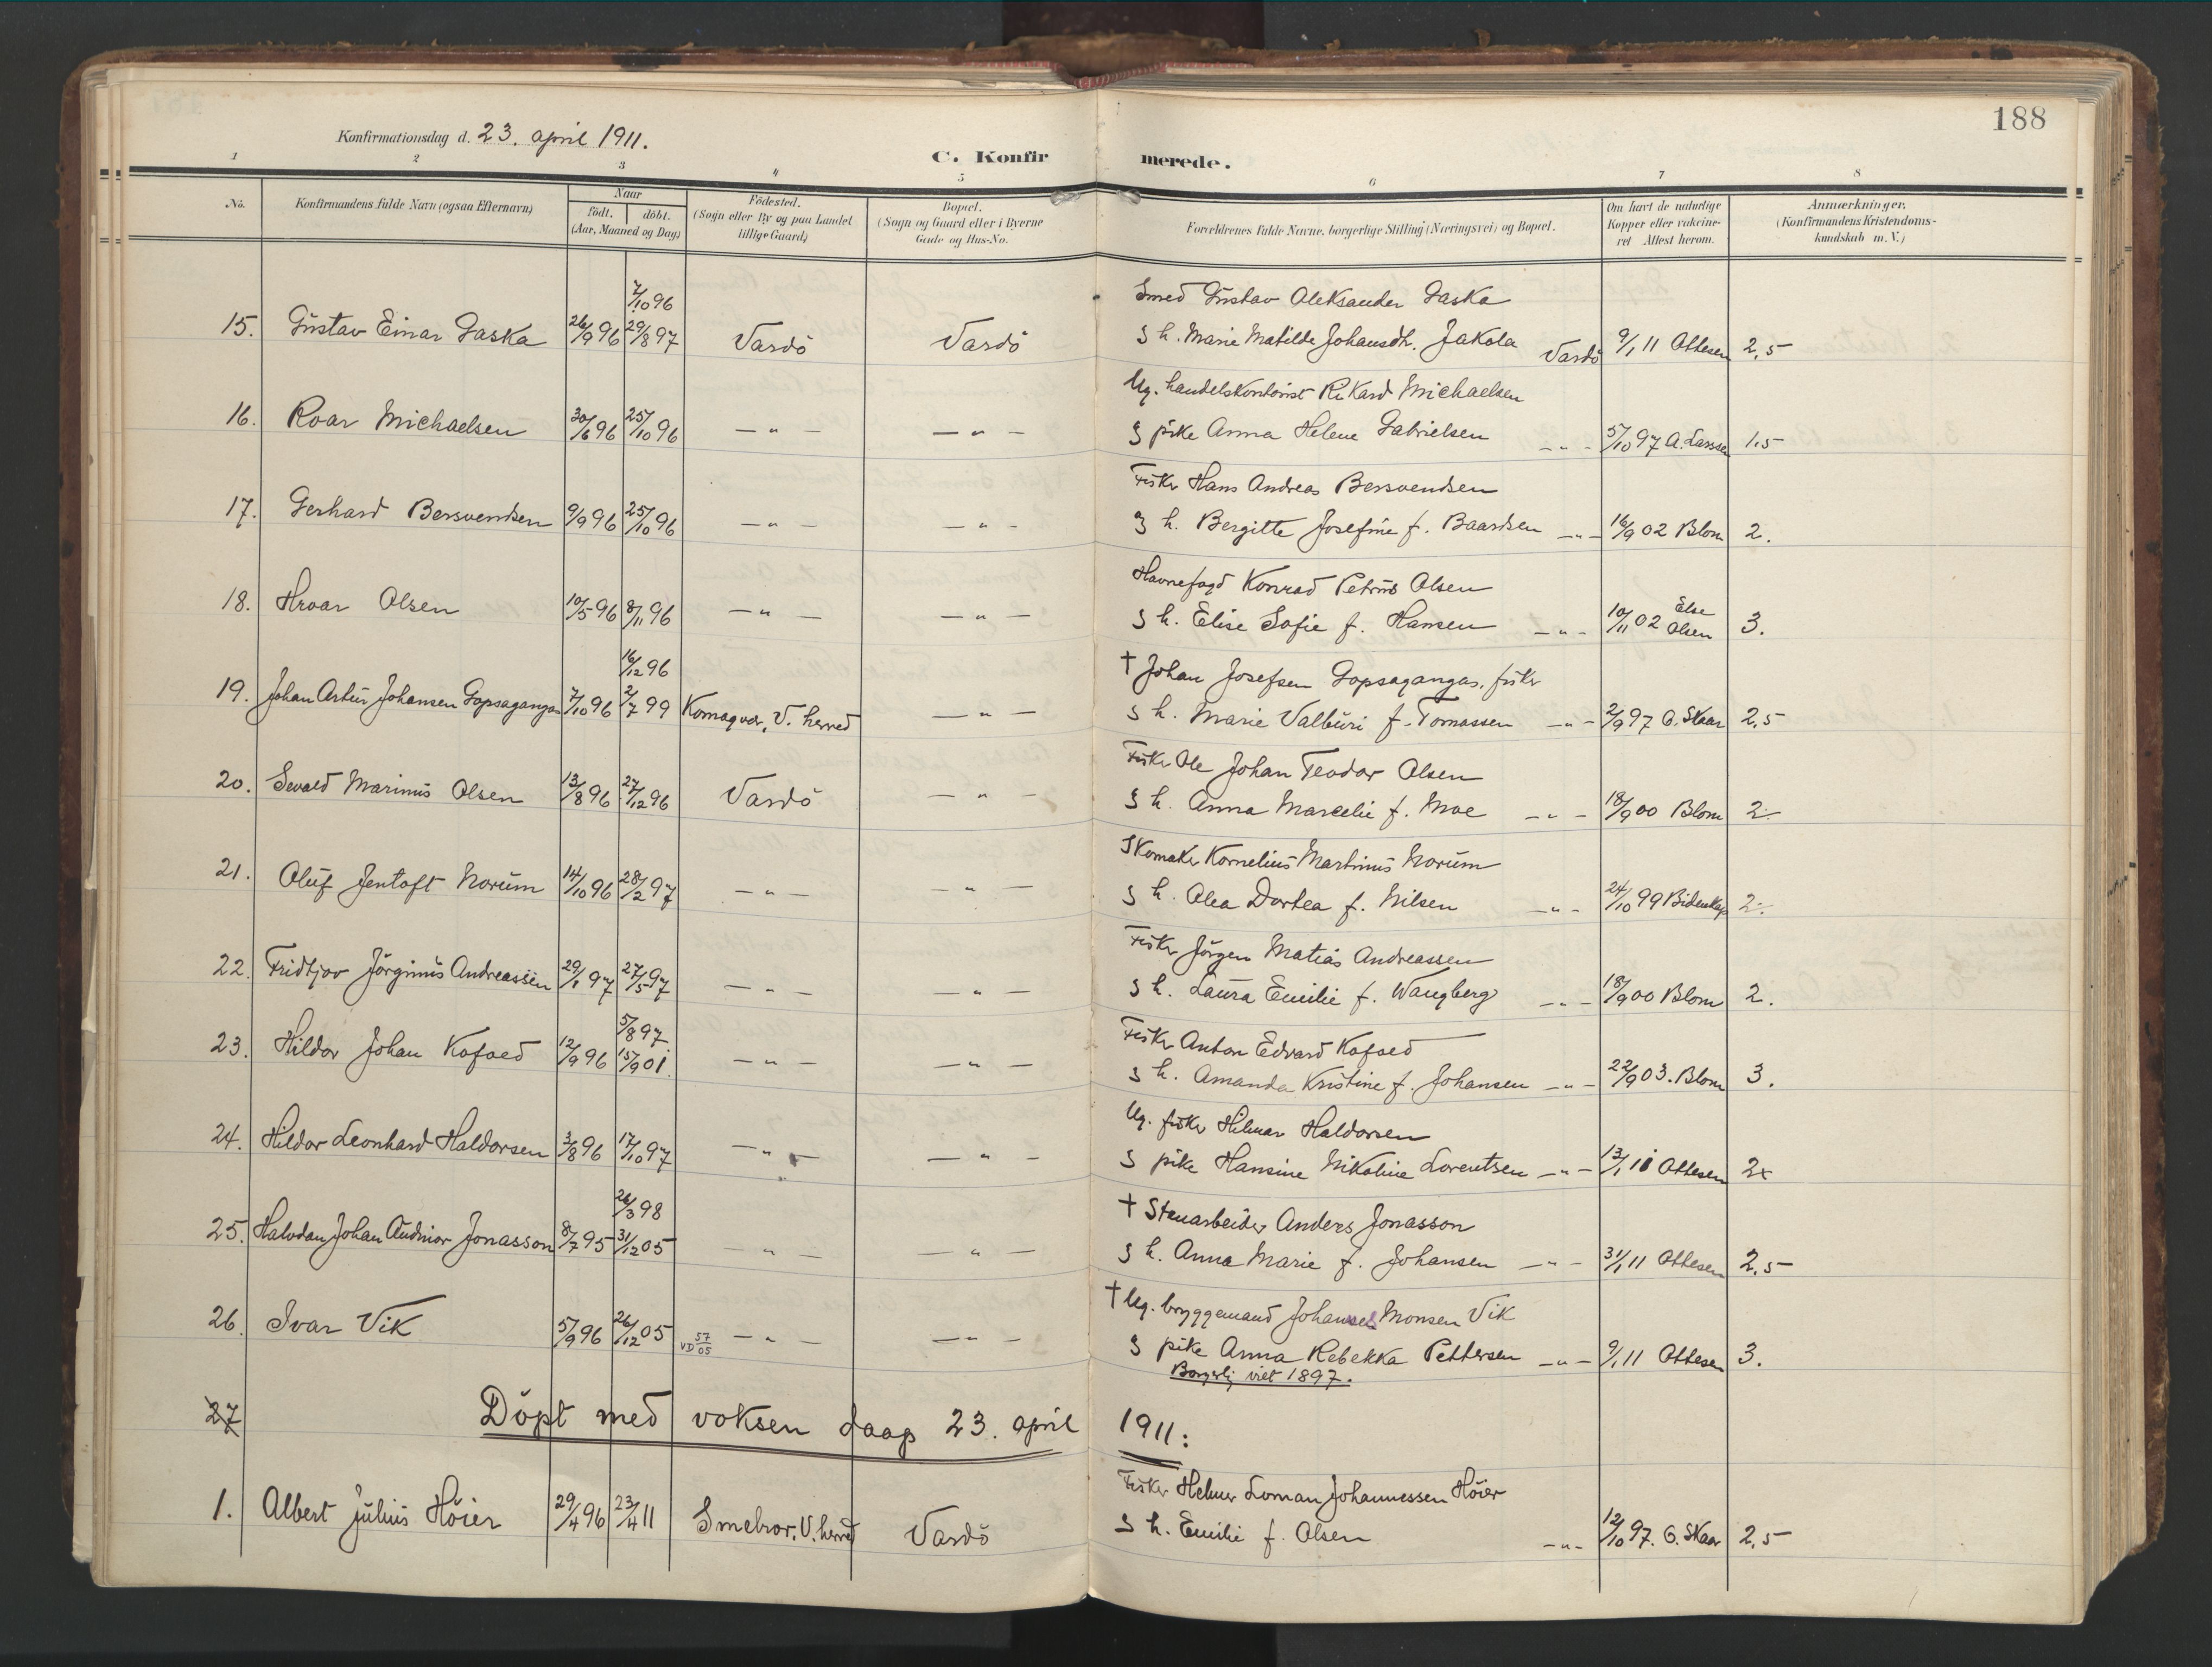 188
Konfirmationsdag d. 23. april 1911.
C. Konfirmerede.
1 2 3 4 5 6 7 8
No. Konfirmandens fulde Navn (ogsaa Efternavn) Naar født. døbt. (Aar, Maaned og Dag) Fødested. (Sogn eller By og paa Landet tillige Gaard) Bopæl. (Sogn og Gaard eller i Byerne Gade og Hus-No. Forældrenes fulde Navne, borgerlige Stilling (Næringsvei) og Bopæl. Om havt de naturlige Kopper eller vakcineret Attest herom. Anmærkninger. (Konfirmandens Kristendomskundskab m. V.)
7/10 96 Smed Gustav Aleksander Gaska
15. Gustav Einar Gaska 26/9 96 29/8 97 Vardö Vardö & h. Marie Matilde Johansdtr. Jakola Vardö 9/1 11 Ottesen 2,5
Ug. handelskontorist Rikard Michaelsen
16. Roar Michaelsen 30/6 96 25/10 96 — " — — " — & pike Anna Helene Gabrielsen — " — 5/10 97 A. Larssen 1,5
Fisker Hans Andreas Bersvendsen
17. Gerhard Bersvendsen 9/9 96 25/10 96 — " — — " — & h. Bergitte Josefine f. Baardsen — " — 16/9 02 Blom 2.
Havnefogd Konrad Petrus Olsen
18. Hroar Olsen 10/5 96 8/11 96 — " — — " — & h. Elise Sofie f. Hansen — " — 10/11 02 Else Olsen 3.
16/12 96 † Johan Josefsen Gapsagangas, fisker
19. Johan Artur Johansen Gapsagangas 7/10 96 2/7 99 Komagvær, V. herred — " — & h. Marie Valburi f. Tomassen — " — 2/9 97 O. Skaar 2,5
Fisker Ole Johan Teodor Olsen
20. Sevald Marinus Olsen 13/8 96 27/12 96 Vardö — " — & h. Anna Marcelie f. Moe — " — 18/9 00 Blom 2÷
Skomaker Kornelius Martinus Norum
21. Oluf Jentoft Norum 14/10 96 28/2 97 — " — — " — & h. Alea Dortea f. Nilsen — " — 24/10 99 Bidenkap 2÷
Fisker Jörgen Matias Andreassen
22. Fridtjov Jörginus Andreassen 29/1 97 27/5 97 — " — — " — & h. Laura Emilie f. Wangberg — " — 18/9 00 Blom 2.
5/8 97 Fisker Anton Edvard Kofoed
23. Hildor Johan Kofoed 12/9 96 15/9 01 — " — — " — & h. Amanda Kristine f. Johansen — " — 22/9 03. Blom 3.
Ug. fisker Hilmar Haldorsen
24. Hildor Leonhard Haldorsen 3/8 96 17/10 97 — " — — " — & pike Hansine Nikoline Lorentsen — " — 13/1 11 Ottesen 2x
26/3 98 † Stenarbeider Anders Jonasson
25. Halvdan Johan Audnior Jonasson 8/7 95 31/12 05 — " — — " — & h. Anna Marie f. Johansen — " — 31/1 11 Ottesen 2,5
† Ug. bryggemand Johannes Monsen Vik
26. Ivar Vik 5/9 96 26/12 05 VD 57/05 — " — — " — & pike Anna Rebekka Pettersen — " — 9/1 11 Ottesen 3.
Borgerlig viet 1897.
27 Döpt med voksen daap 23. april 1911:
Fisker Helmer Loman Johannessen Höier
1. Albert Julius Höier 29/4 96 23/4 11 Smelror. V. herred Vardö & h. Emilie f. Olsen — " — 12/10 97. O. Skaar 2,5